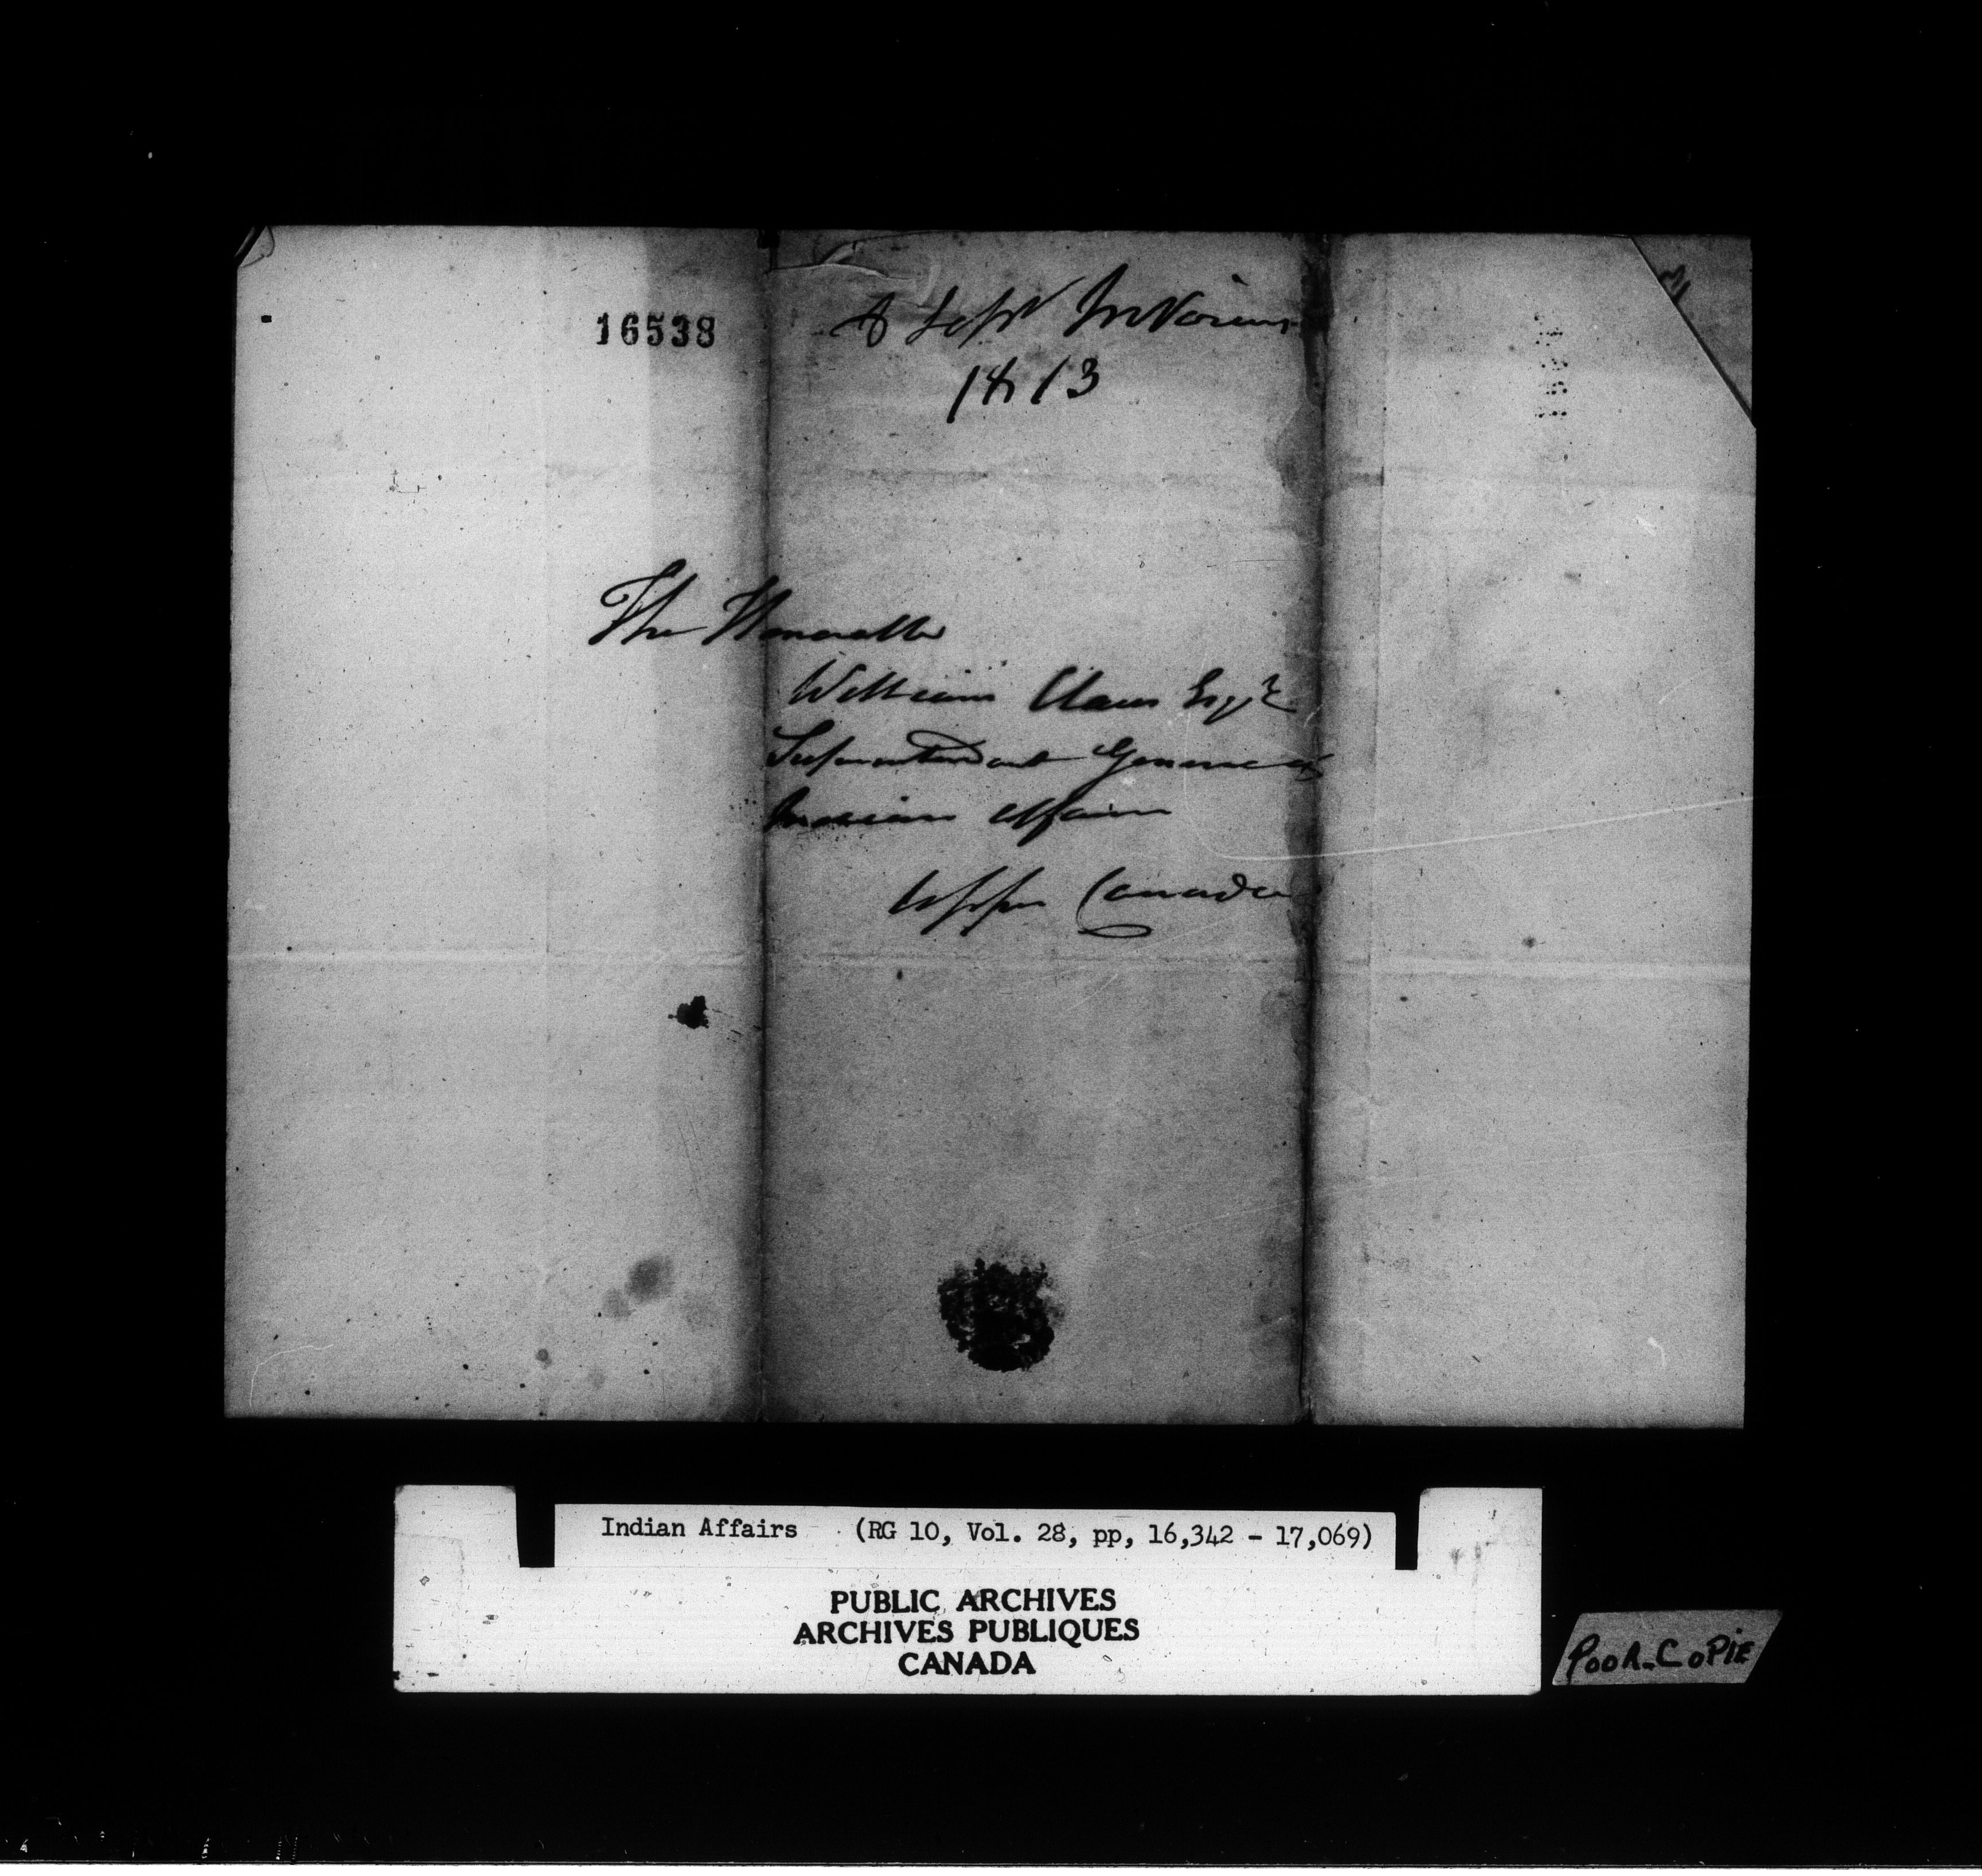 16538
8 Sept
1813
The Honorable
William Claus Esqr
Superintendent General
Indian Affairs
Upper Canada
Indian Affairs (RG 10, Vol. 28, pp, 16,342 - 17,069)
PUBLIC ARCHIVES
ARCHIVES PUBLIQUES
CANADA
POOR-COPIE